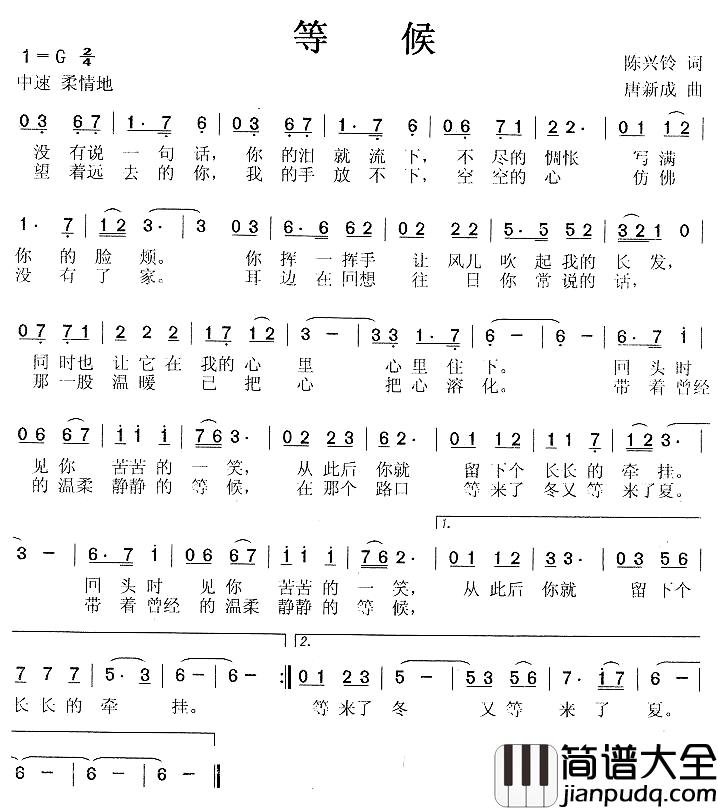 等 候
1=G 2/4
陈兴铃 词
中速 柔情地
唐新成 曲
03 67 | 1· 7 6 | 03 67 | 1· 7 6 | 06 7 5 | 22· | 01 12 |
没有说一句话，你的泪就流下，不尽的惆怅 写满
望着远去的你，我的手放不下，空空的心 仿佛
1· 7 | 12 3· | 3 03 | 6· 6 62 | 02 22 | 5· 5 52 | 321 0 |
你的脸颊。 你挥一挥手 让风儿吹起我的长发，
没有了家。 耳边在回想 往日你常说的话，
07 71 | 2 2 2 | 17 12 | 3 - | 33 1·7 | 6 - | 6 - | 6·7 i |
同时也让它在我的心里 心里住下。 回头时
那一股温暖已把心 把心溶化。 带着曾经
06 67 | i i i | 763· | 02 23 | 62· | 01 12 | 11 7 | 123· |
见你 苦苦的一笑， 从此后你就 留下个长长的牵挂。
的温柔静静的等候， 在那个路口 等来了冬又等来了夏。
1.
3 - | 6·7 i | 06 67 | i i i | 762· | 01 12 | 33· | 03 56 |
回头时 见你 苦苦的一笑， 从此后你就 留下个
带着曾经的温柔静静的等候，
2.
7 7 7 | 5·3 | 6 - | 6 - :‖ 01 23 | 2 - | 2 - | 53 56 | 7· i7 | 6 - |
长长的牵挂。 等来了冬 又等来了夏。
6 - | 6 - | 6 - ‖
简谱大全
jianpudq.com